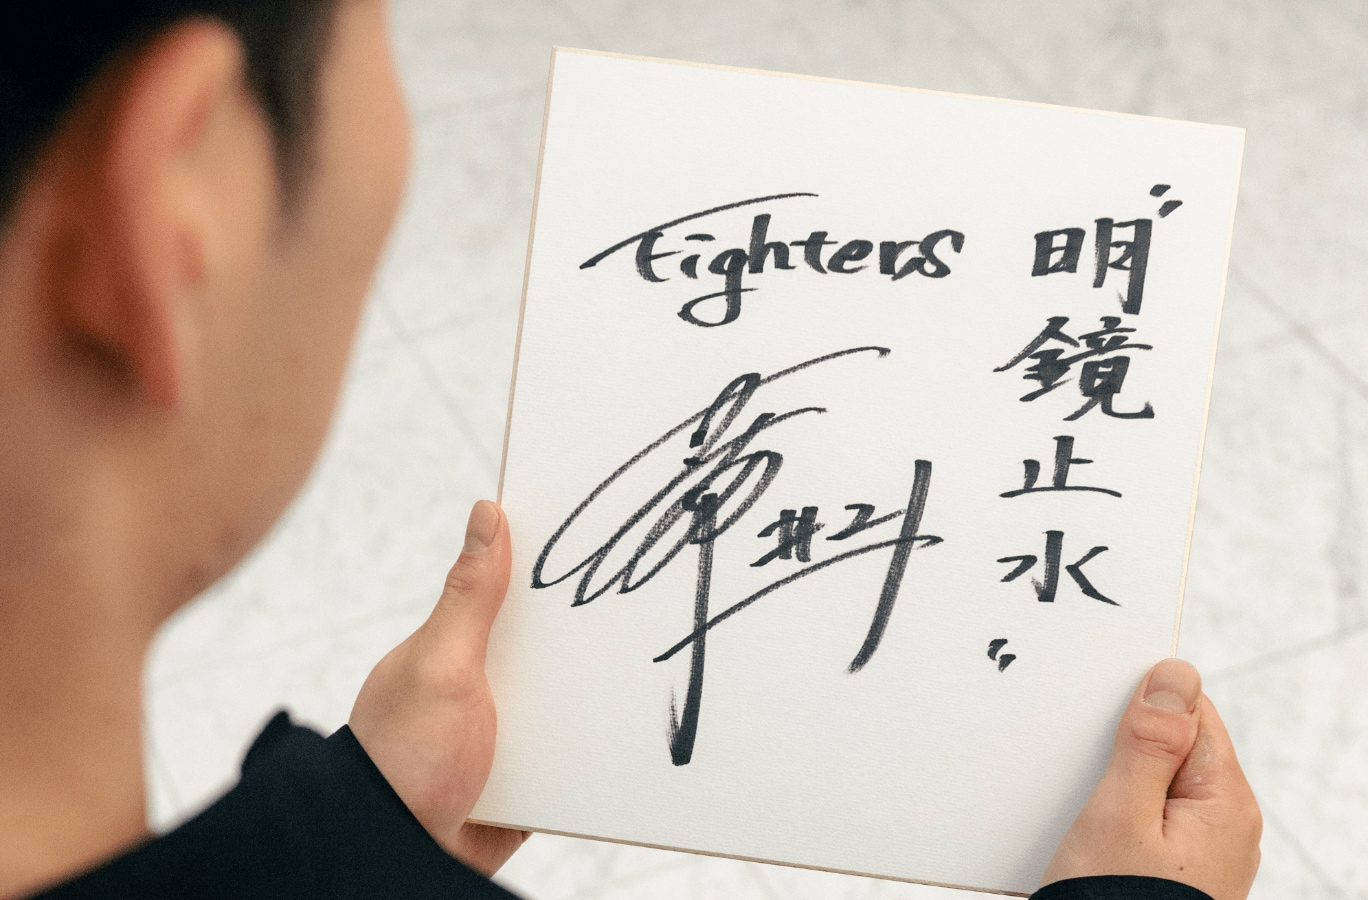 Fighters
"明鏡止水"
#21